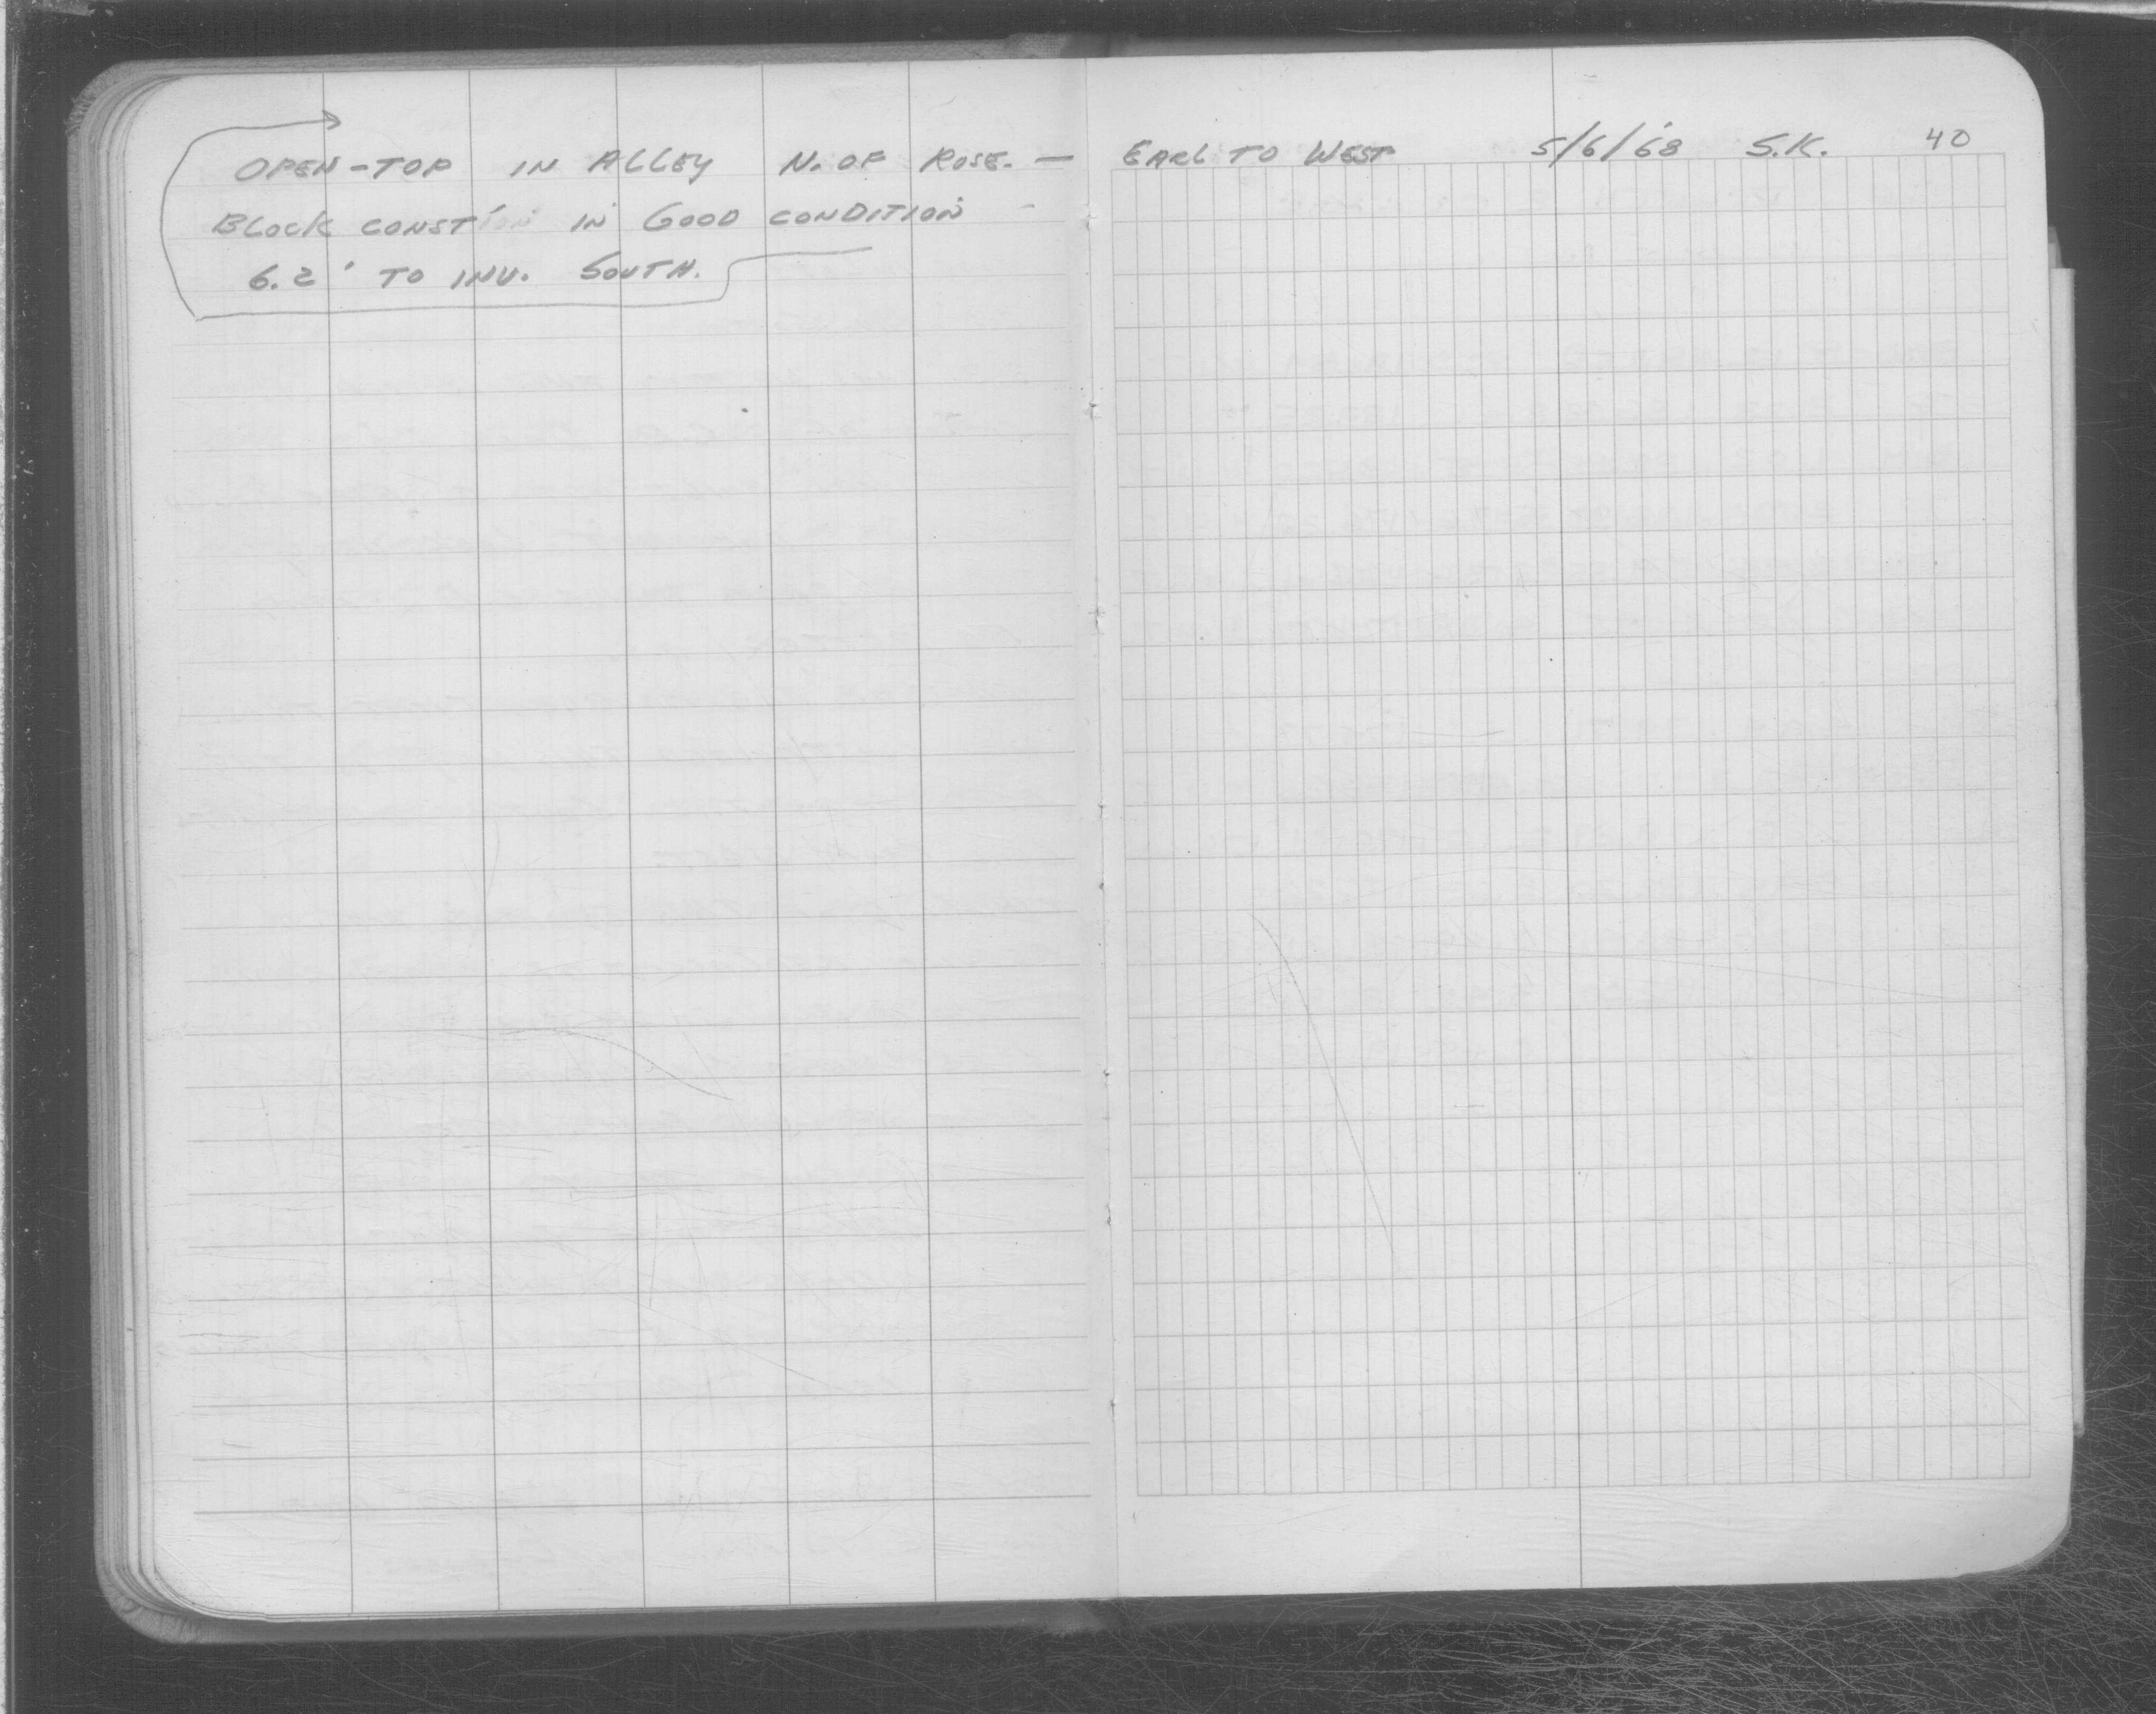 OPEN-TOP IN ALLEY N. OF ROSE. — EARL TO WEST 5/6/68 S.K. 40
BLOCK CONST'ION IN GOOD CONDITION
6.2' TO INV. SOUTH.